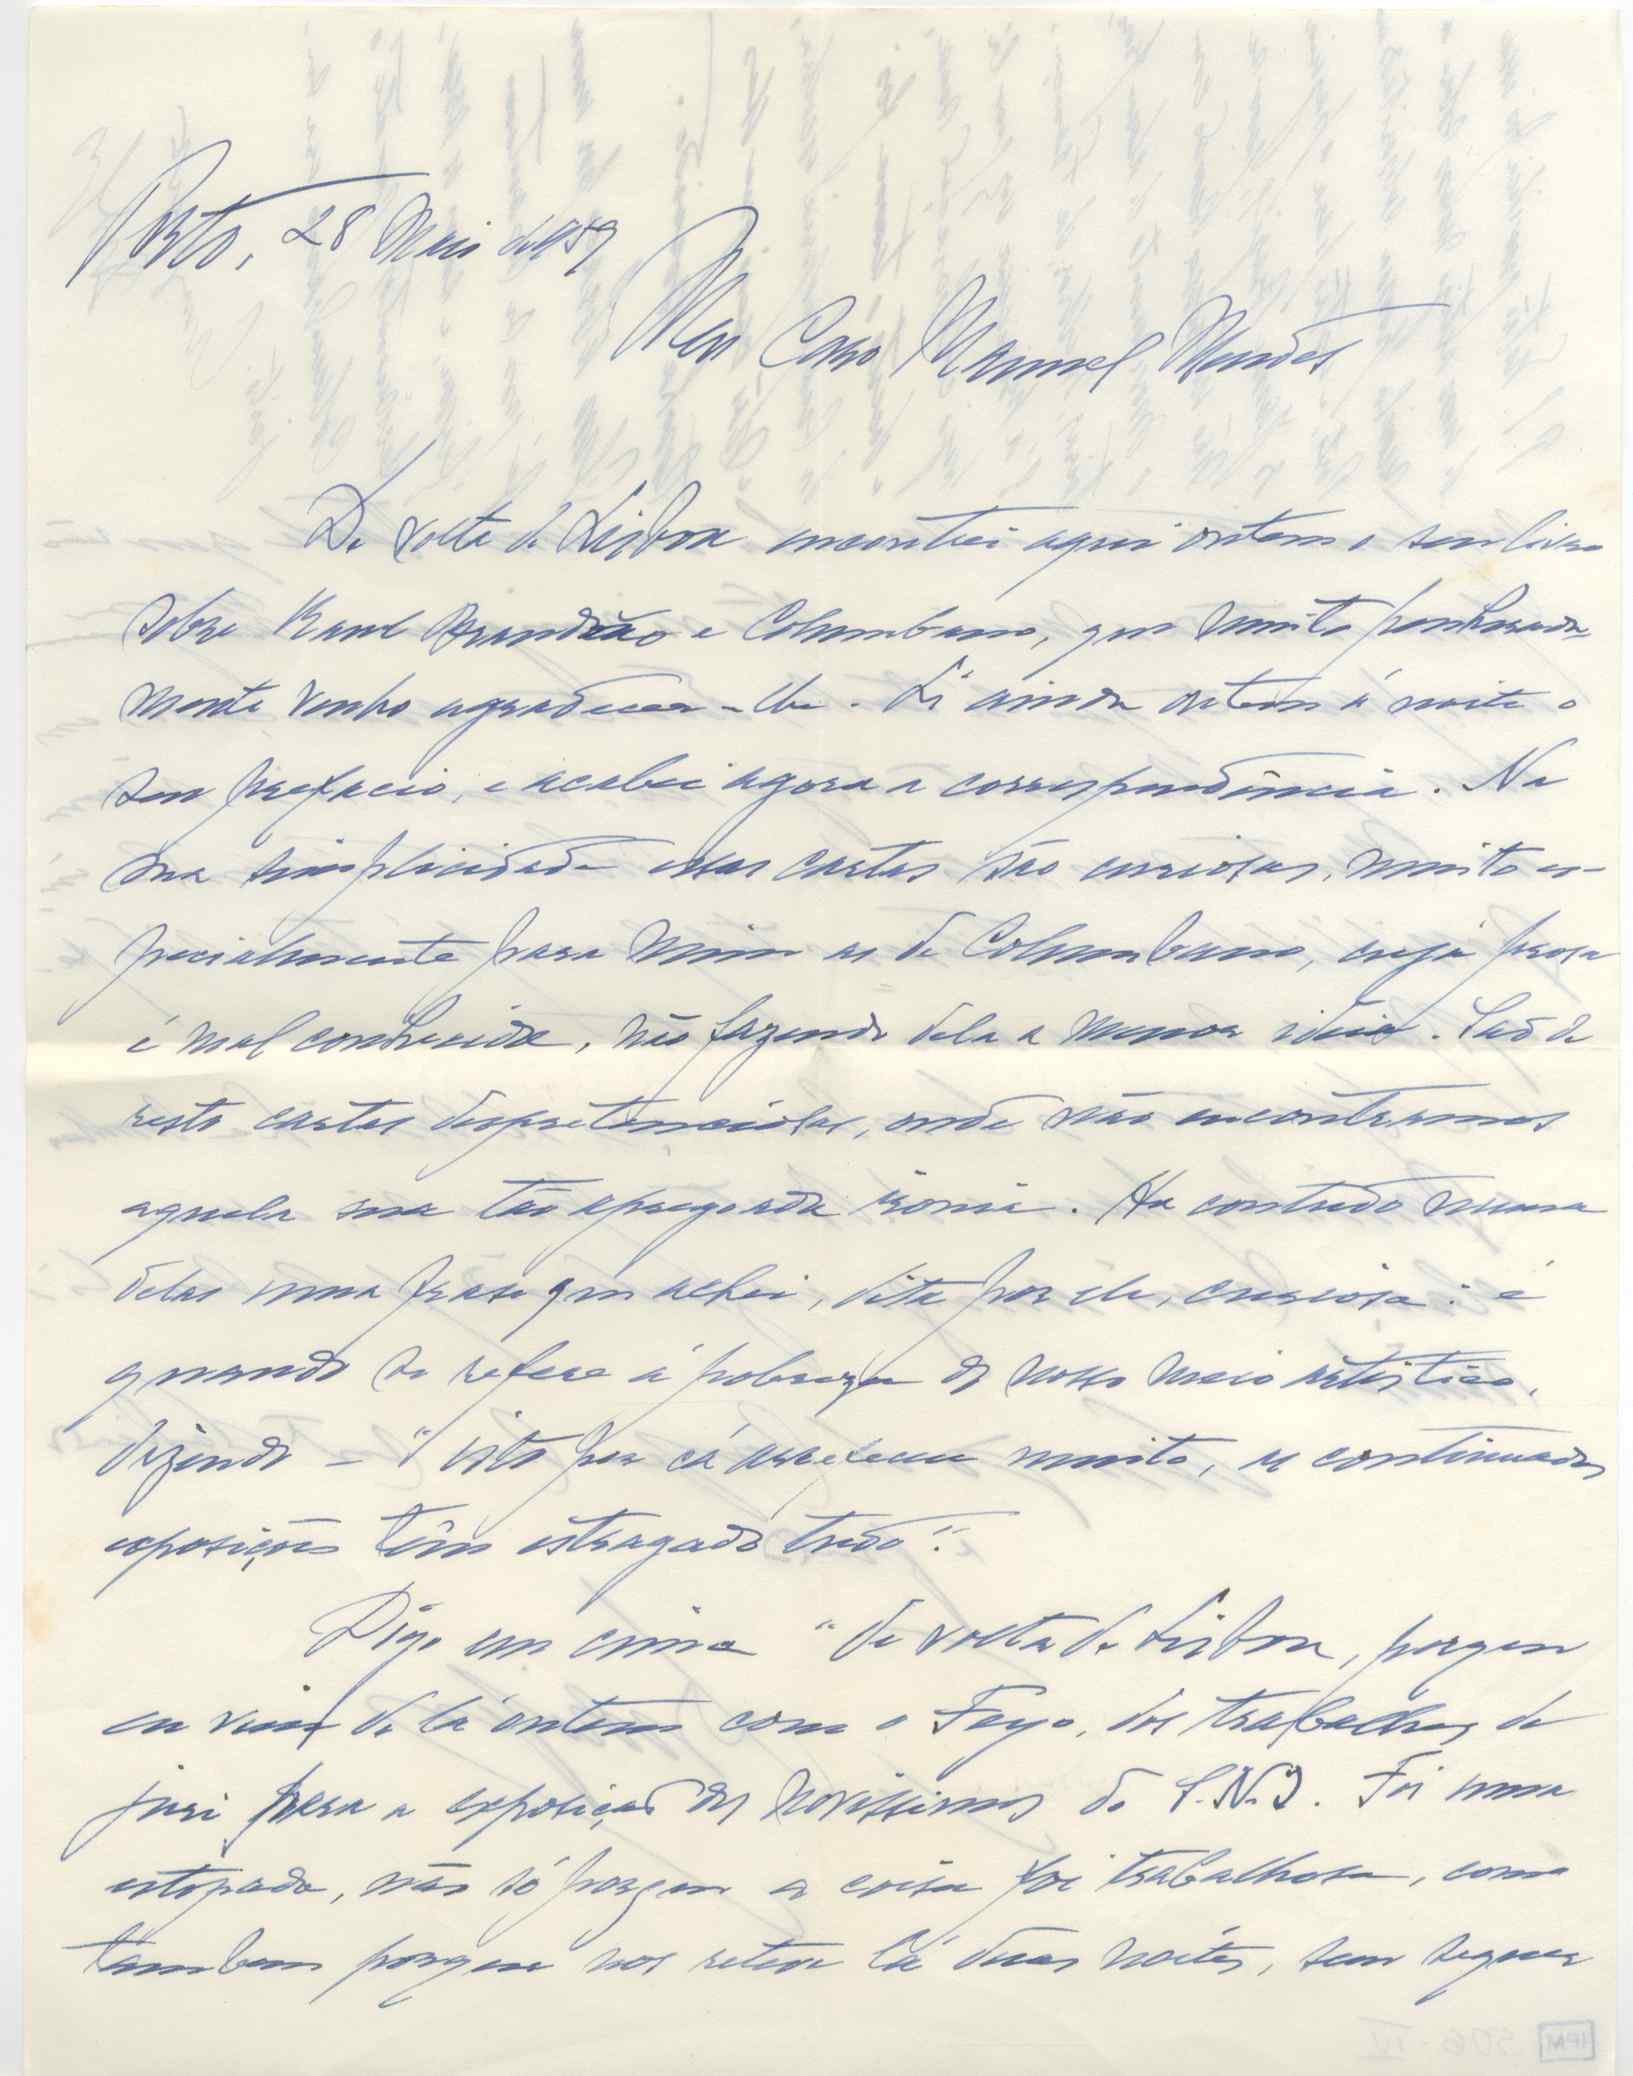 Porto, 28 Maio de 1959
Meu Caro Manuel Mendes
De volta de Lisboa encontrei aqui ontem o seu livro
sobre Raul Brandão e Columbano, que muito penhorada-
mente venho agradecer-lhe. Li ainda ontem á noite o
seu prefacio, e acabei agora a correspondência. Na
sua simplicidade essas cartas são curiosas, muito es-
pecialmente para mim as de Columbano, cuja prosa
é mal conhecida, não fazendo dela a menor ideia. São de
resto cartas despretenciosas, onde não encontramos
aquela sua tão apregoada ironia. Ha contudo numa
delas uma frase que achei, dita por ele, curiosa: é
quando se refere á pobreza do nosso meio artistico,
dizendo – "isto por cá arrefeceu muito, as continuadas
exposições têm estragado tudo".
Digo em cima "de volta de Lisboa, porque
eu vim de lá ontem com o , dos trabalhos do
juri para a exposição dos novissimos do S.N.I. Foi uma
estopada, não só porque a coisa foi trabalhosa, como
tambem porque nos reteve lá duas noites, sem sequer
IPM
506-IV